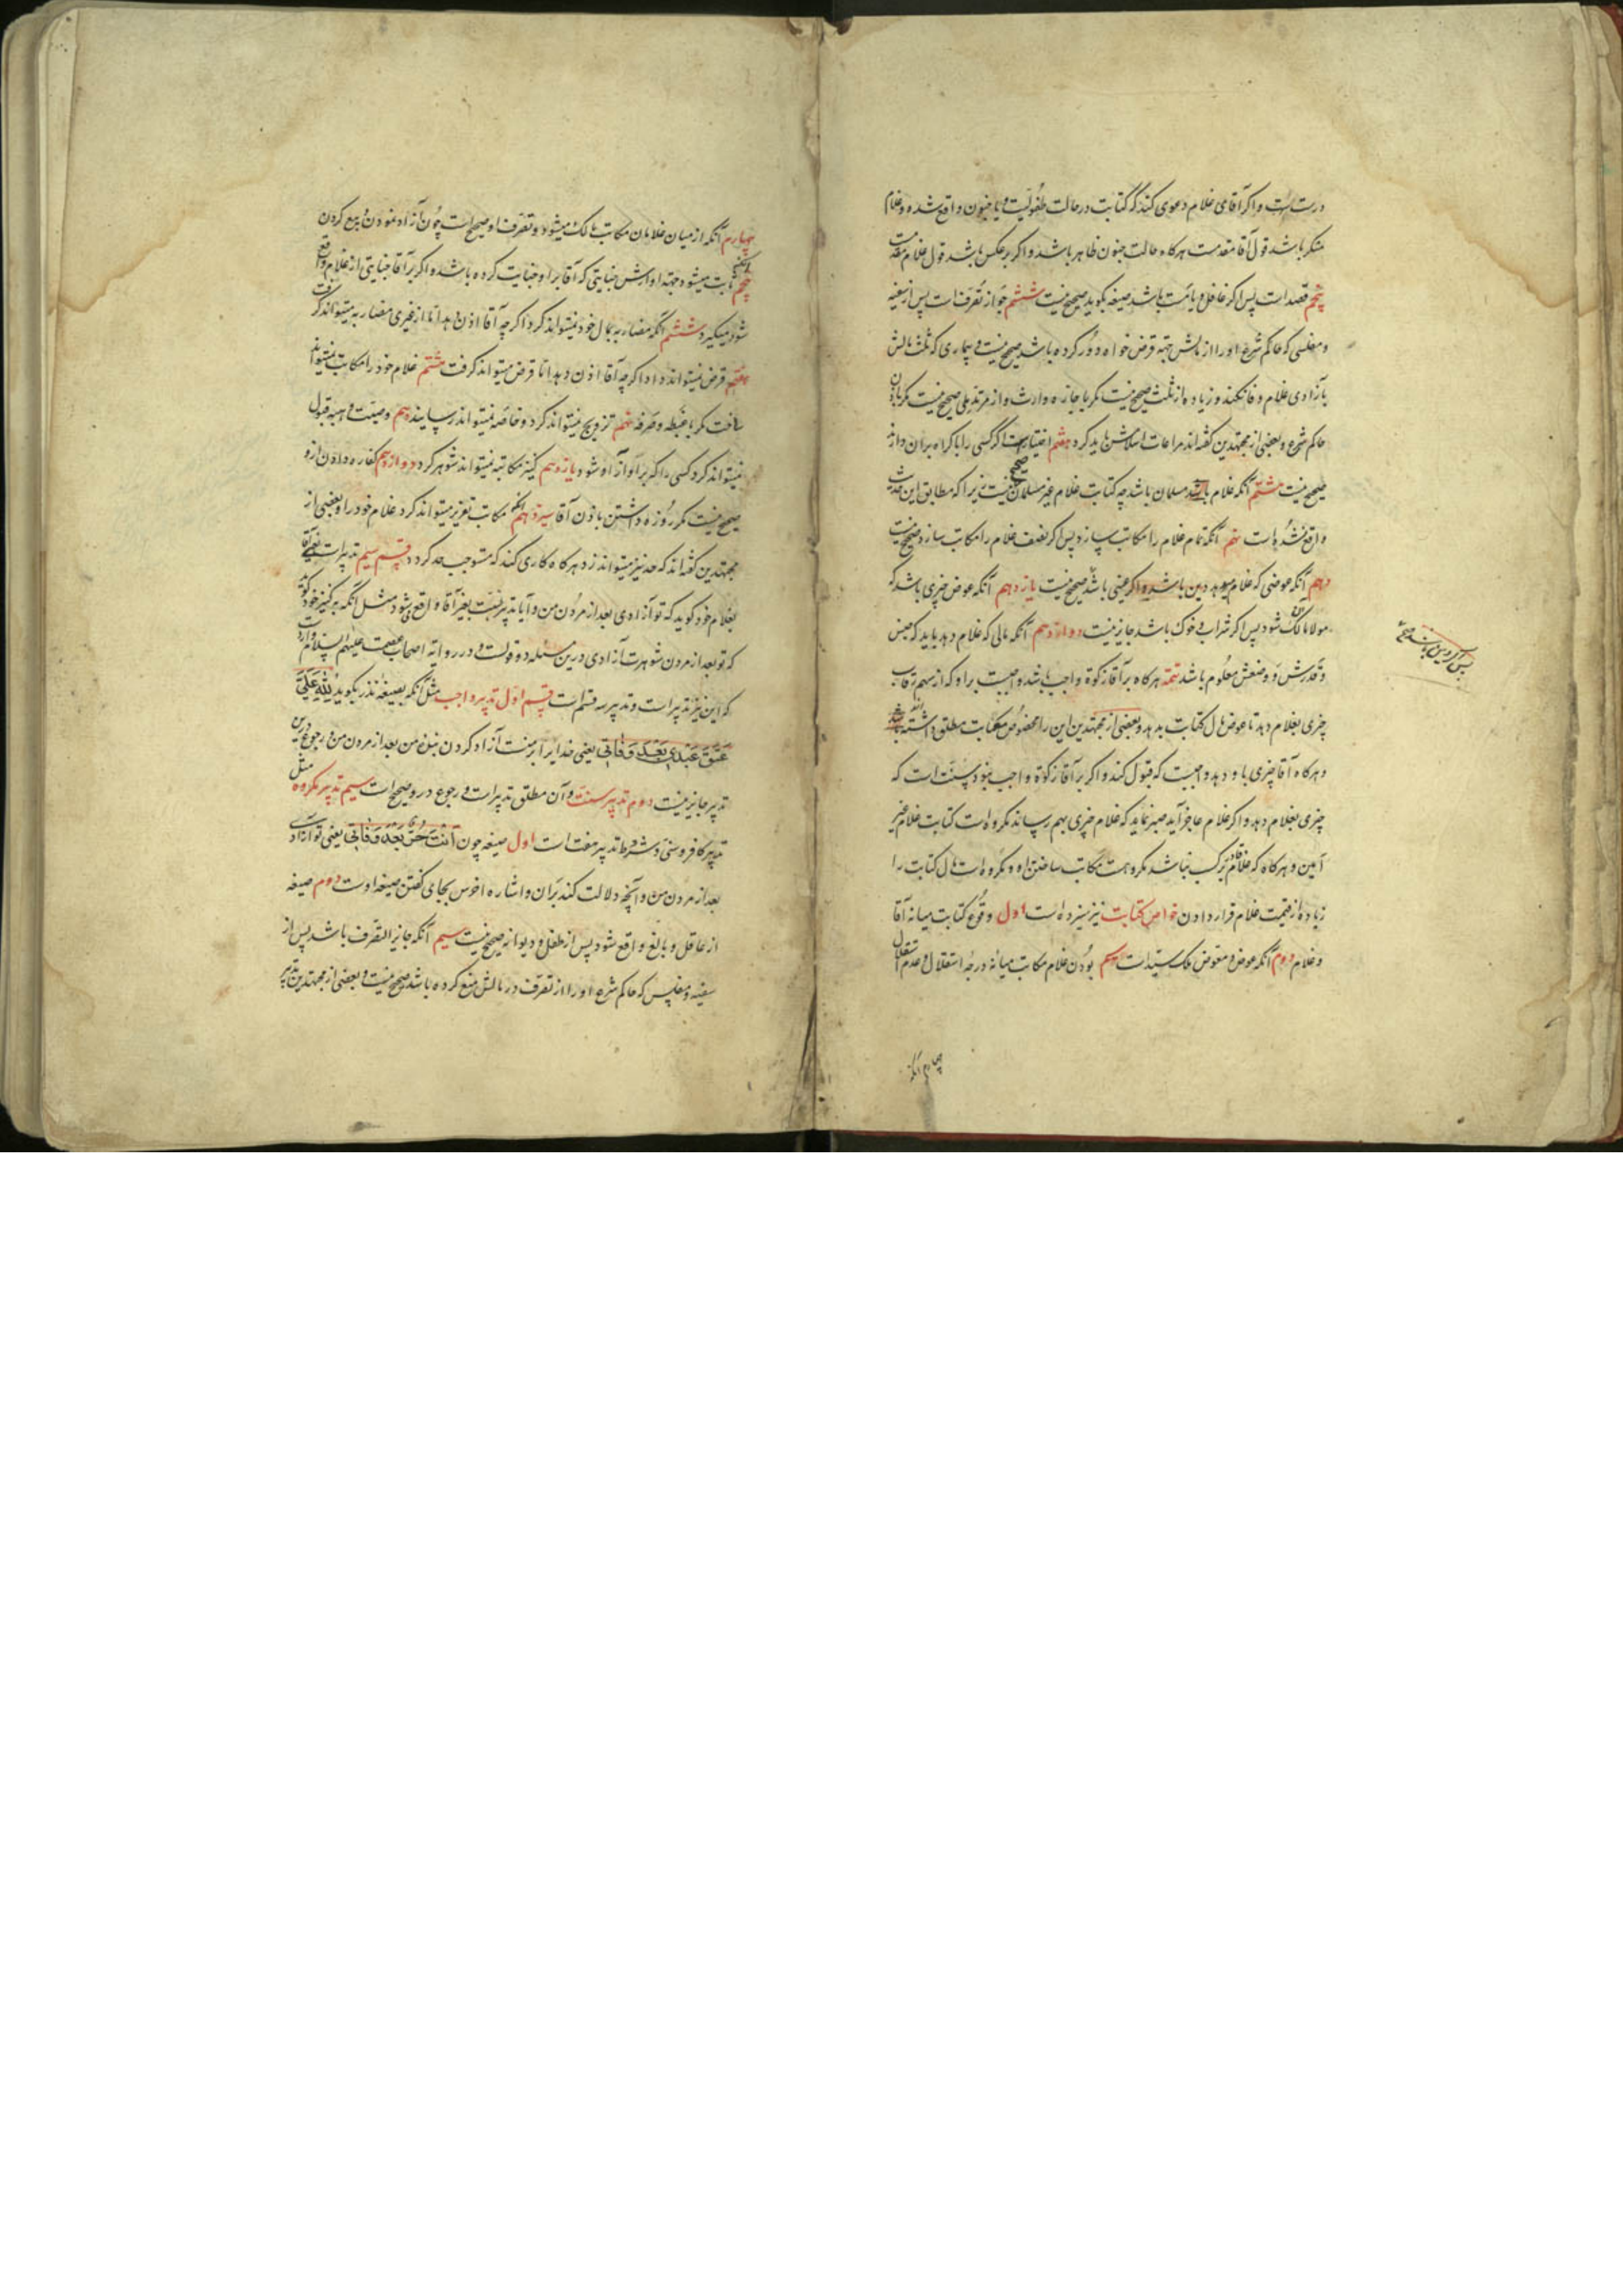 درست است و اکر آقای غلام دعوی کند که کتابت در حالت طفولیت و یا جنون واقع شده و غلام
منکر باشد قول آقا مقدمست هرکاه حالت جنون ظاهر باشد و اکر برعکس باشد قول غلام مقدمست
پنجم قصد است پس اکر غافل و یا مست باشد صیغه بکوید صحیح نیست ششم جواز تصرفات پس از سفیه
و مفلسی که حاکم شرع او را از مالش جهة قرض خواه دور کرده باشد صحیح نیست و بیماری که ثلث مالش
بآزادی غلام وفا نکند و زیاده از ثلث صحیح نیست مکر باجازه وارث و از مرتد ملی صحیح نیست مکر باذن
حاکم شرع و بعضی از مجتهدین کفته اند مراعات اسلامش باید کرد هفتم اختیارست اکر کسی را باکراه بران دارند
صحیح نیست هشتم آنکه غلام باید مسلمان باشد چه کتابت غلام غیر مسلمان صحیح نیست زیرا که مطابق این حدیث
واقع نشده است نهم آنکه تمام غلام را مکاتب سازد پس اکر نصف غلام را مکاتب سازد صحیح نیست
دهم آنکه عوضی که غلام میدهد دین باشد و اکر عینی باشد صحیح نیست یازدهم آنکه عوض چیزی باشد که
مولا مالک آن شود پس اکر شراب و خوک باشد جایز نیست دوازدهم آنکه مالی که غلام دهد باید که جنس
و قدرش و وصفش معلوم باشد تتمه هرکاه بر آقا زکوة واجب باشد واجبست بر او که از سهم رقاب
چیزی بغلام دهد تا عوض مال کتابت بدهد و بعضی از مجتهدین این را مخصوص مکاتب مطلق داشته اند
و هرکاه آقا چیزی باو دهد واجبست که قبول کند و اکر بر آقا زکوة واجب نبود سنت است که
چیزی بغلام دهد و اکر غلام عاجز آید صبر نماید که غلام چیزی بهم رساند مکروه است کتابت غلام غیر
امین و هرکاه که غلام قادر بر کسب نباشد مکروهست مکاتب ساختن او و مکروه است مال کتابت را
زیاده از قیمت غلام قرار دادن خواص کتابت نیز سیزده است اول وقوع کتابت میانه آقا
و غلام دوم آنکه عوض و معوض ملک سیّد است سیم بودن غلام مکاتب میانه درجه استقلال و عدم استقلال
پس اکر دین نباشد صح
چهارم آنکه
چهارم آنکه از میان غلامان مکاتب مالک میشود و تصرف او صحیح است چون آزاد نمودن و بیع کردن
پنجم آنکه ثابت میشود جهة او ارش جنایتی که آقا بر او جنایت کرده باشد و اکر بر آقا جنایتی از غلام واقع
شود میکیرد ششم آنکه مضاربه بمال خود نمیتواند کرد اکر چه آقا اذن دهد اما از غیری مضاربه میتواند کرفت
هفتم قرض نمیتواند داد اکر چه آقا اذن دهد اما قرض میتواند کرفت هشتم غلام خود را مکاتب نمیتواند
ساخت مکر با غبطه و صرفه نهم تزویج نمیتواند کرد و خاصه نمیتواند رسانید دهم وصیت و هبه قبول
نمیتواند کرد کسی را که بر او آزاد شود یازدهم کنیز مکاتبه نمیتواند شوهر کرد دوازدهم کفاره دادن ازو
صحیح نیست مکر روزه داشتن باذن آقا سیزدهم آنکه مکاتب تعزیر میتواند کرد غلام خود را و بعضی از
مجتهدین کفته اند که حد نیز میتواند زد هرکاه کاری کند که مستوجب حد کردد قسم سیم تدبیر است یعنی آقا
بغلام خود کوید که تو آزادی بعد از مردن من و آیا تدبیر نسبت بغیر آقا واقع میشود مثل آنکه بر کنیز خود کوید
که تو بعد از مردن شوهرت آزادی درین مسئله دو قولست و در روایة اصحاب عصمت علیهم السلام وارد است
که این نیز تدبیر است و تدبیر سه قسم است قسم اول تدبیر واجب مثل آنکه بصیغه نذر بکوید لله علیّ
عتق عبدی بعد وفاتی یعنی خدایرا بر منست آزاد کردن بنده من بعد از مردن من و رجوع درین
تدبیر جایز نیست دوم تدبیر سنت و آن مطلق تدبیر است و رجوع در و صحیح است سیم تدبیر مکروه مثل
تدبیر کافر و سنی و شرط تدبیر هفت است اول صیغه چون انت حرّ بعد وفاتی یعنی تو آزادی
بعد از مردن من و آنچه دلالت کند بران و اشاره اخرس بجای کفتن صیغه اوست دوم صیغه
از عاقل و بالغ واقع شود پس از طفل و دیوانه صحیح نیست سیم آنکه جایز التصرف باشد پس از
سفیه و مفلس که حاکم شرع او را از تصرف در مالش منع کرده باشد صحیح نیست و بعضی از مجتهدین تدبیر